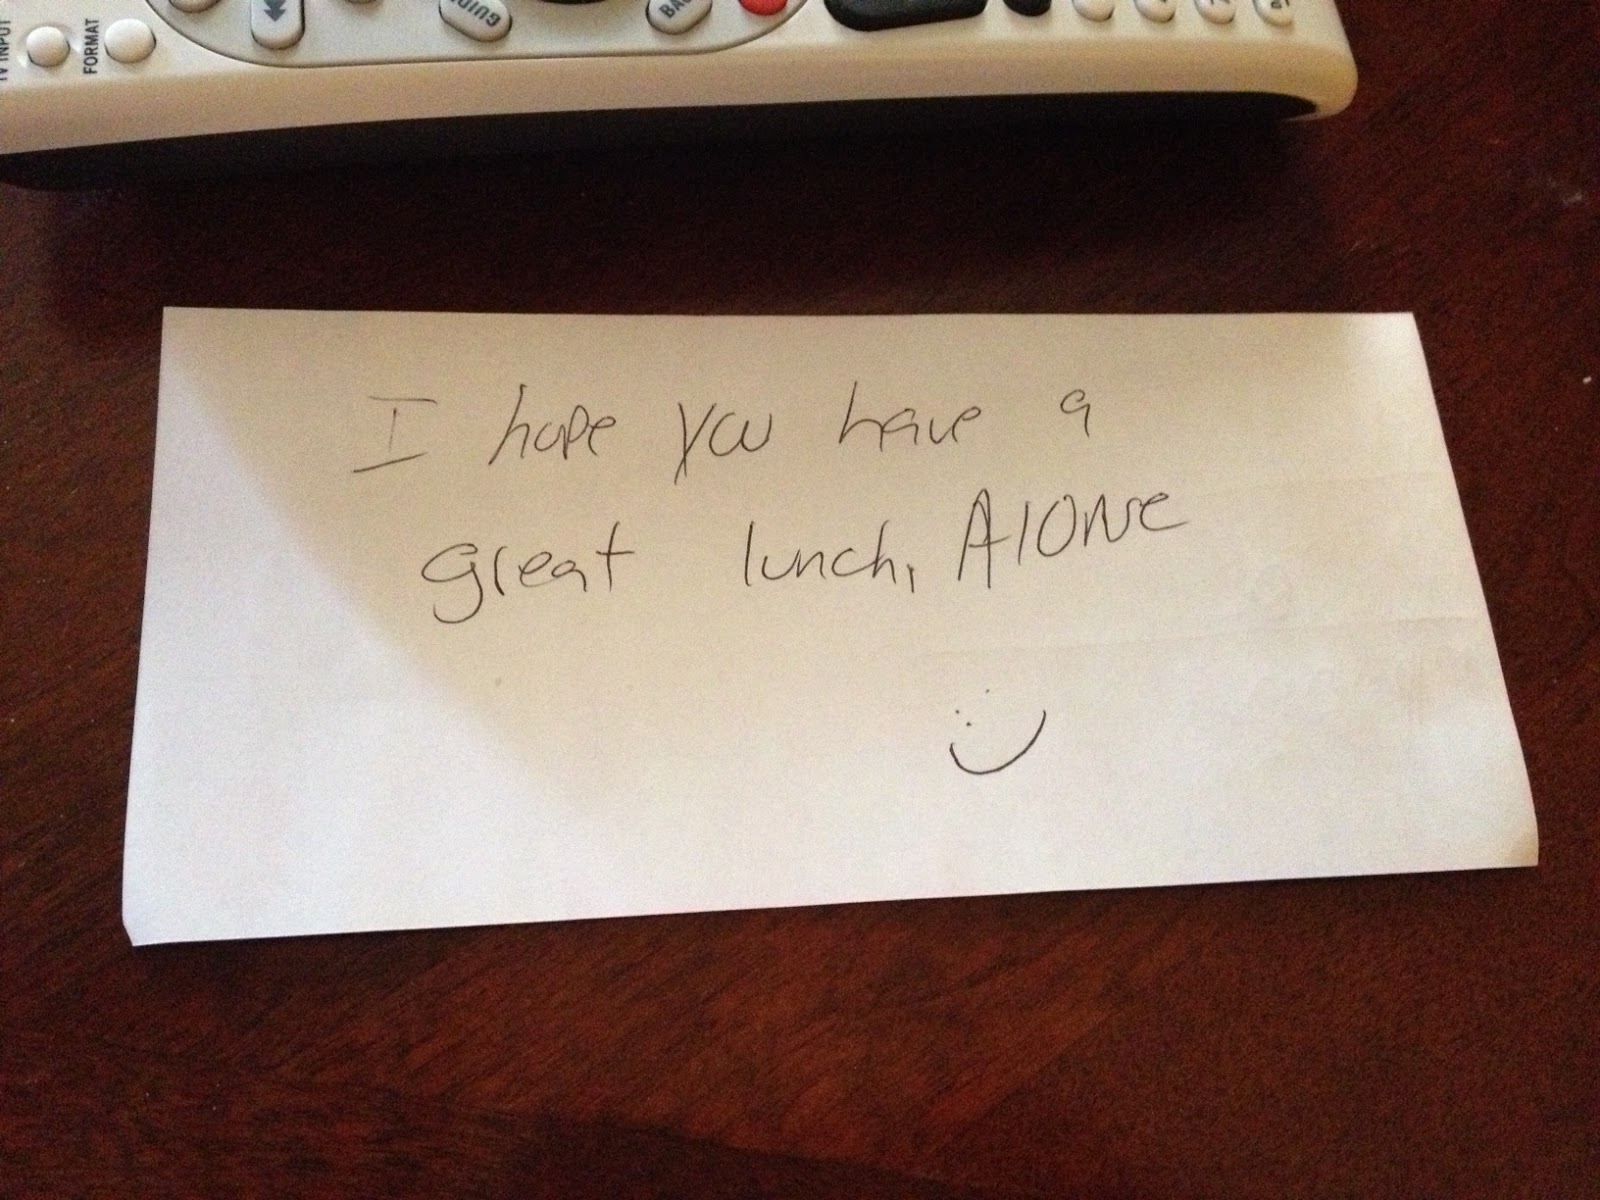 TV INPUT
FORMAT
GUIDE
I hope you have a
great lunch, Alone